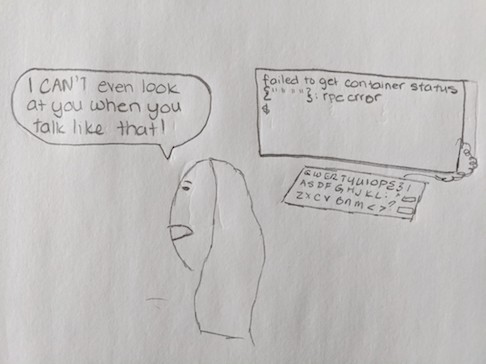 I CAN'T even look
at you when you
talk like that!
failed to get container status
{" " " "}: rpc error
$
QWERTYUIOP{}|
ASDFGHJKL:"
ZXCVBNM<>?